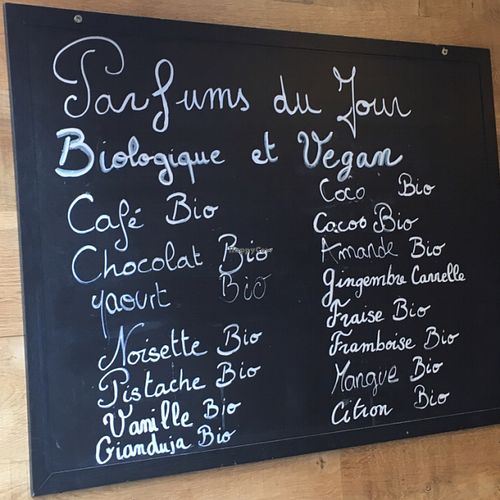 Parfums du Jour
Biologique et Vegan
Café Bio
Chocolat Bio
yaourt Bio
Noisette Bio
Pistache Bio
Vanille Bio
Gianduja Bio
Coco Bio
Cacao Bio
Amande Bio
Gingembre Cannelle
Fraise Bio
Framboise Bio
Mangue Bio
Citron Bio